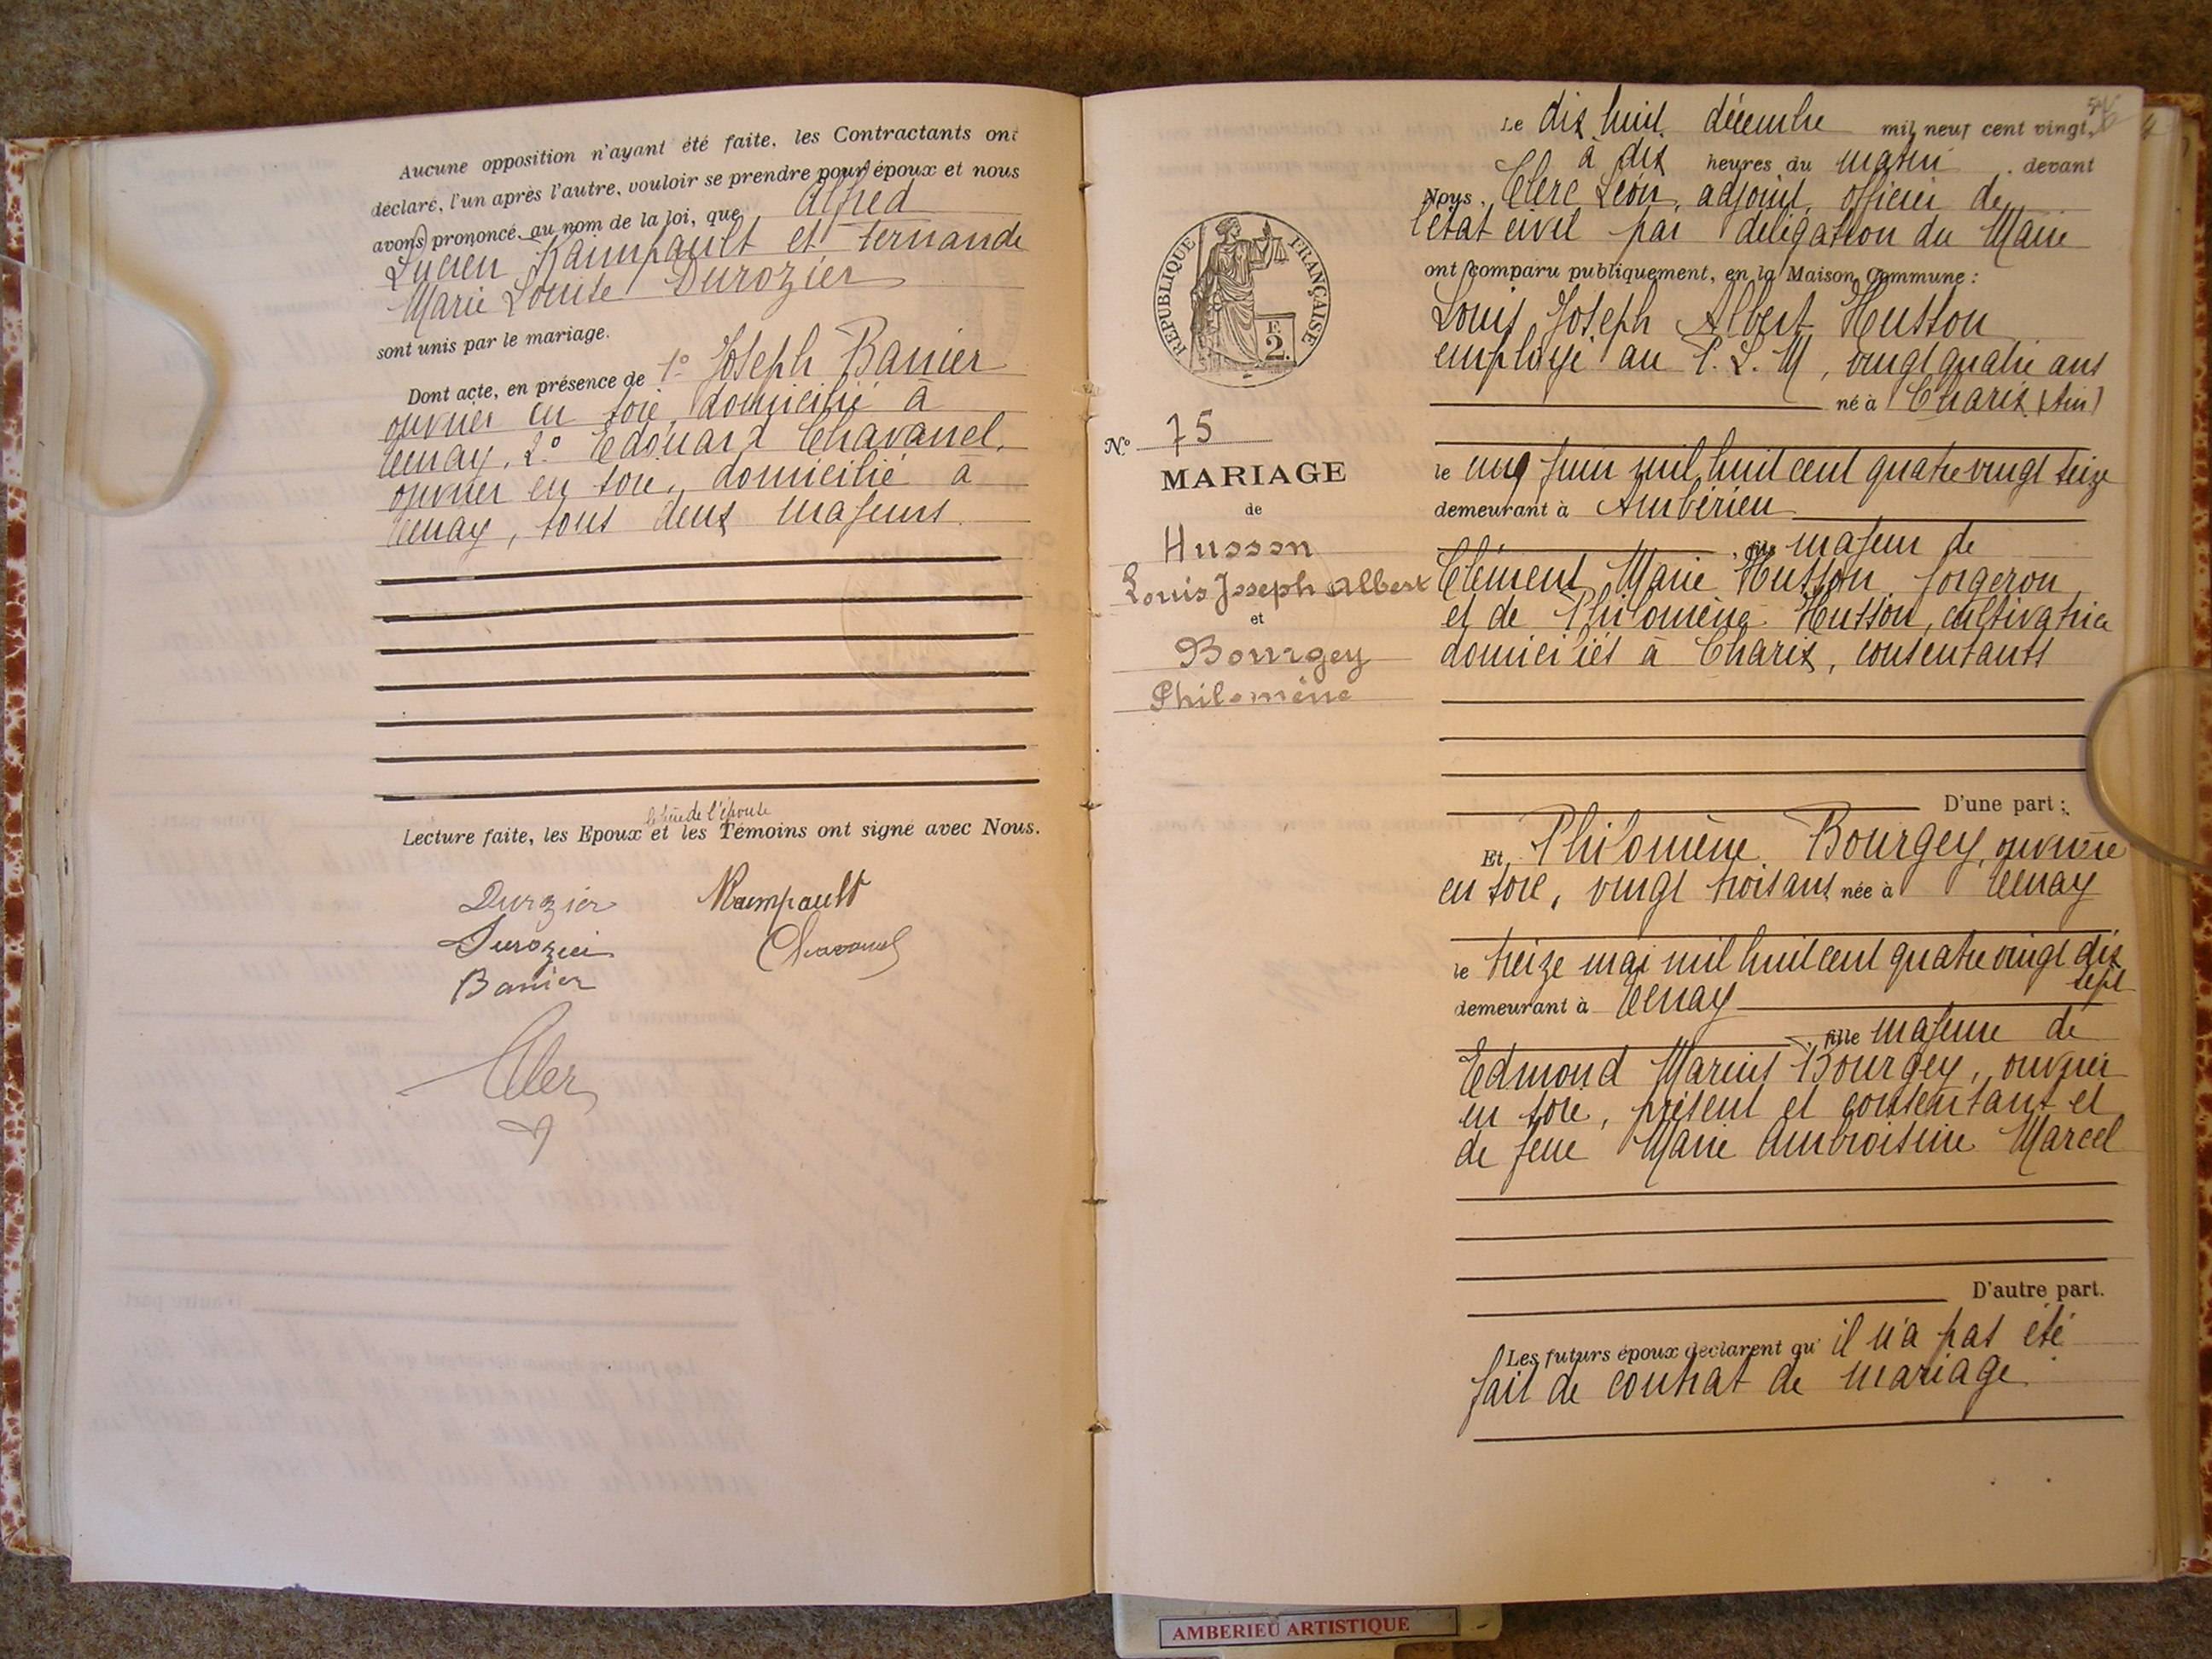 Aucune opposition n'ayant été faite, les Contractants ont
déclaré, l'un après l'autre, vouloir se prendre pour époux et nous
avons prononcé, au nom de la loi, que Alfred
Lucien Raimpault et Fernande
Marie Louise Durozier
sont unis par le mariage.
Dont acte, en présence de 1° Joseph Banier
ouvrier en soie, domicilié à
Tenay, 2° Edouard Chavanel,
ouvrier en soie, domicilié à
Tenay, tous deux majeurs.
le père de l'épouse
Lecture faite, les Epoux et les Témoins ont signé avec Nous.
Durozier Raimpault
Durozier Chavanel
Banier
Clerc
Le dix huit décembre mil neuf cent vingt,
à dix heures du matin, devant
Nous, Clerc Léon, adjoint, officier de
l'état civil par délégation du Maire
ont comparu publiquement, en la Maison Commune :
Louis Joseph Albert Husson
employé au P. L. M, vingt quatre ans
né à Charix (Ain)
N° 75
MARIAGE
de
Husson
Louis Joseph Albert
et
Bourgey
Philomène
RÉPUBLIQUE FRANÇAISE
2 F.
le cinq juin mil huit cent quatre vingt seize
demeurant à Ambérieu
, fils majeur de
Clément Marie Husson forgeron
et de Philomène Husson, cultivatrice
domiciliés à Charix, consentants
D'une part ;
Et Philomène Bourgey, ouvrière
en soie, vingt trois ans née à Tenay
le treize mai mil huit cent quatre vingt dix
sept
demeurant à Tenay
, fille majeure de
Edmond Marius Bourgey, ouvrier
en soie, présent et consentant et
de feue Marie Ambroisine Marcel
D'autre part.
Les futurs époux déclarent qu'il n'a pas été
fait de contrat de mariage.
AMBERIEU ARTISTIQUE